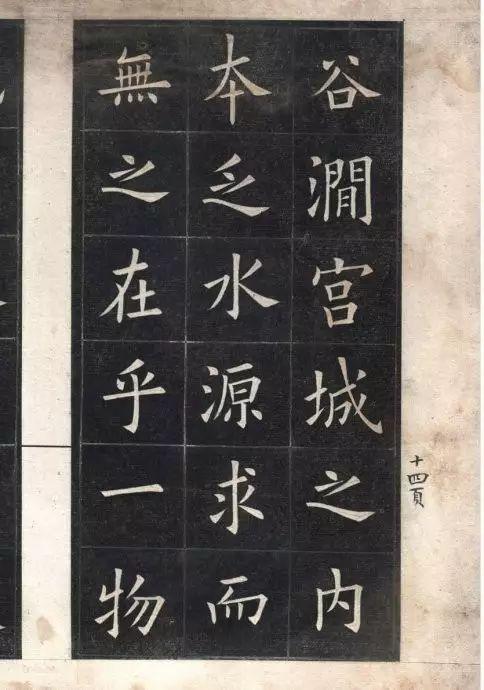 谷澗宫城之内
本乏水源求而
無之在乎一物
十四頁